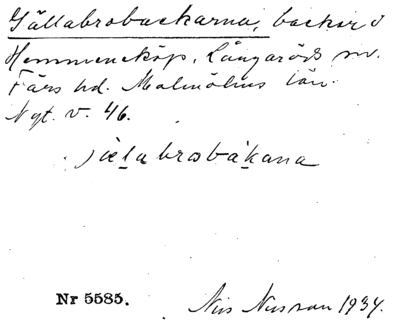 Gällabrobackarna, backar å
Hemmeneköp, Långaröds sn.
Färs hd. Malmöhus län.
Nyt. v. 46.
jælabrobakana
Nr 5585.
Nils Nilsson 1934.